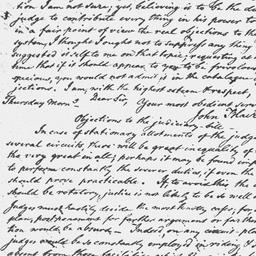 tion I am not sure; yet believing it to be the du
judge to contribute every thing in his power to
in a fair point of view the real objections to th
system, I thought I ought not to suppress any thing
suggested itself to me on that topic; requesting at
time that if it should appear to you to be frivolous
specious, you would not admit it in the catalogue
jections. I am, with the highest esteem & respect,
Thursday Morn. Dear Sir, Your most obedient serv
John Blair
Objections to the judiciary bill.
In case of stationary allotments of the judges
several circuits, there will be great inequality of
the very great in all; perhaps it may be found imp
to perform constantly the severer duties, if even the
should prove practicable. If, to avoid this, the
should be rotatory, justice is not likely to be so well
Judges must hastily decide the most knotty cases, for
plan, postponement for farther argument or farther
tion would be absurd. Indeed, on any circuit plan
Judges would be so constantly employed in riding &
absent from their